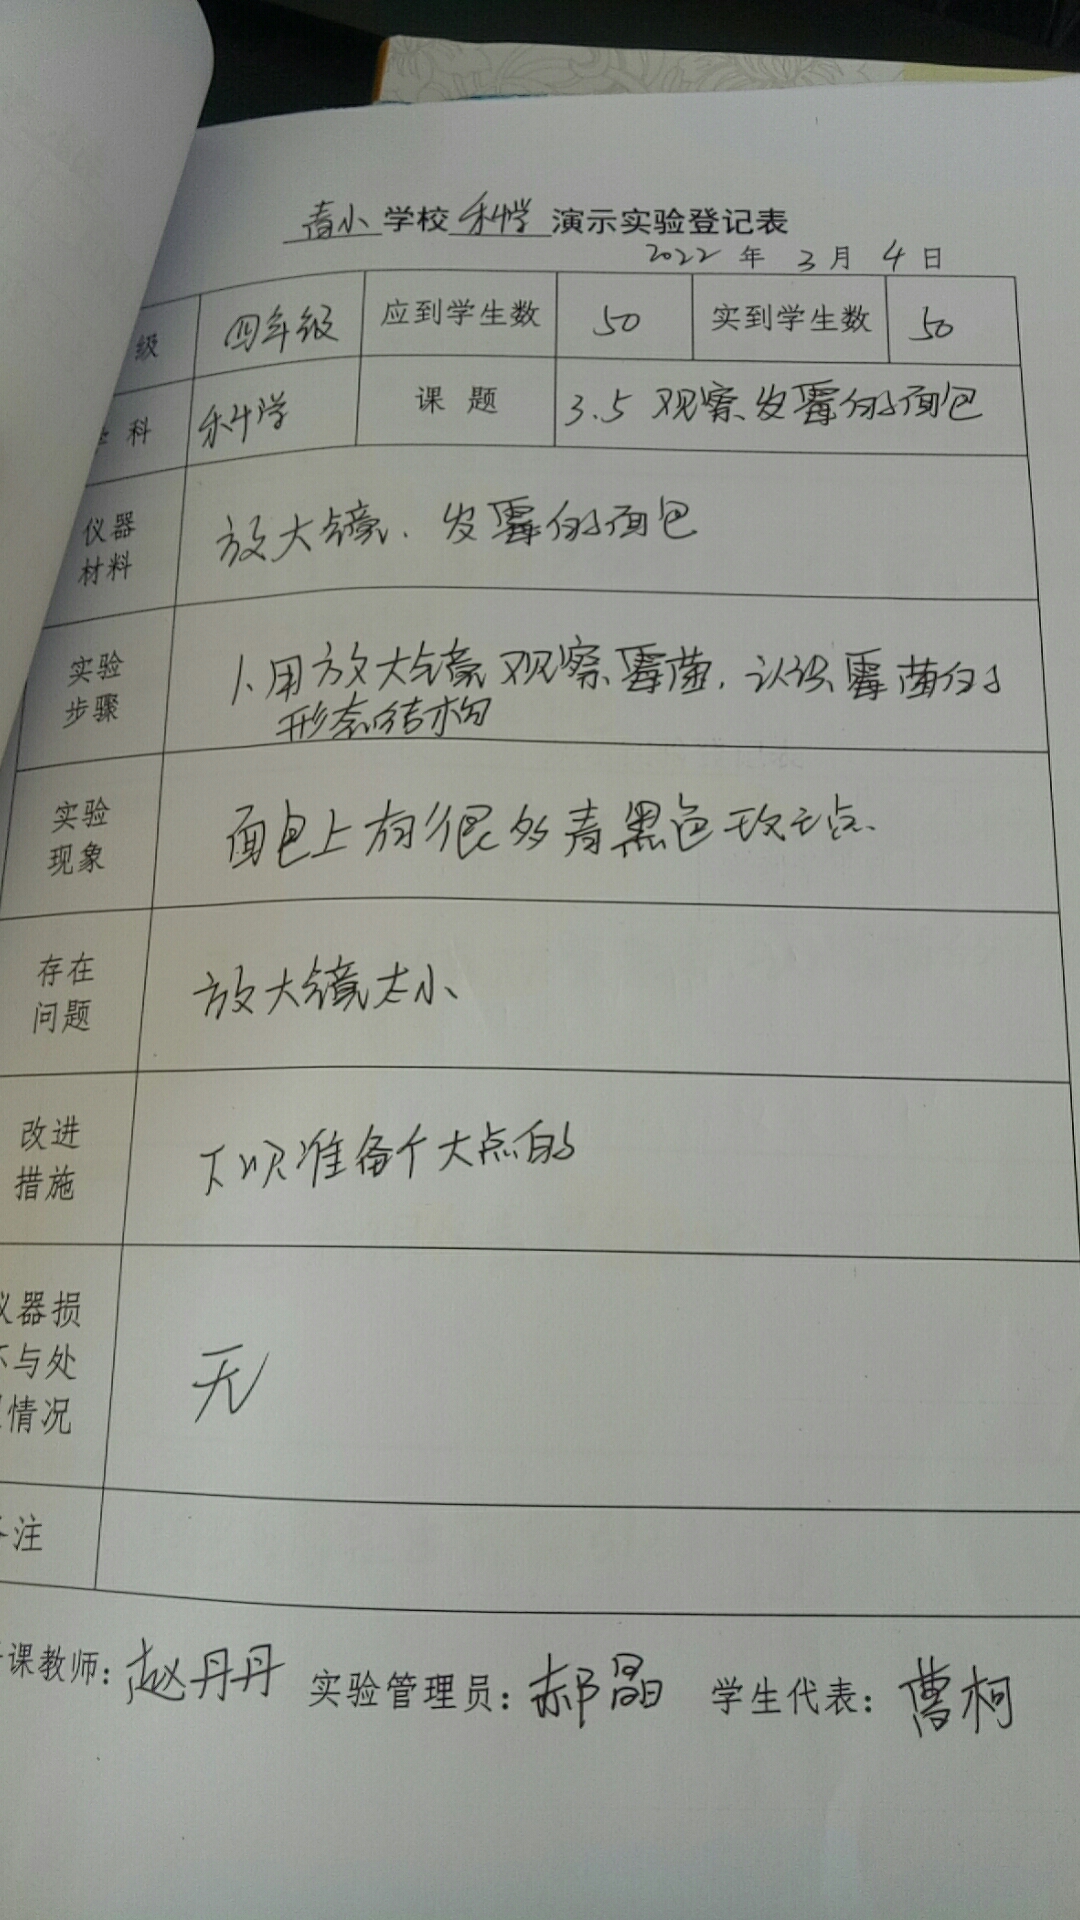 青小学校科学演示实验登记表
2022年3月4日
级 四年级 应到学生数 50 实到学生数 50
科 科学 课题 3.5 观察发霉的面包
仪器
材料
放大镜、发霉的面包
实验
步骤
1、用放大镜观察霉菌,认识霉菌的
形态结构
实验
现象
面包上有很多青黑色斑点、
存在
问题
放大镜太小、
改进
措施
下次准备个大点的
仪器损
坏与处
理情况
无
备注
课教师:赵丹丹 实验管理员:郝晶 学生代表:曹柯